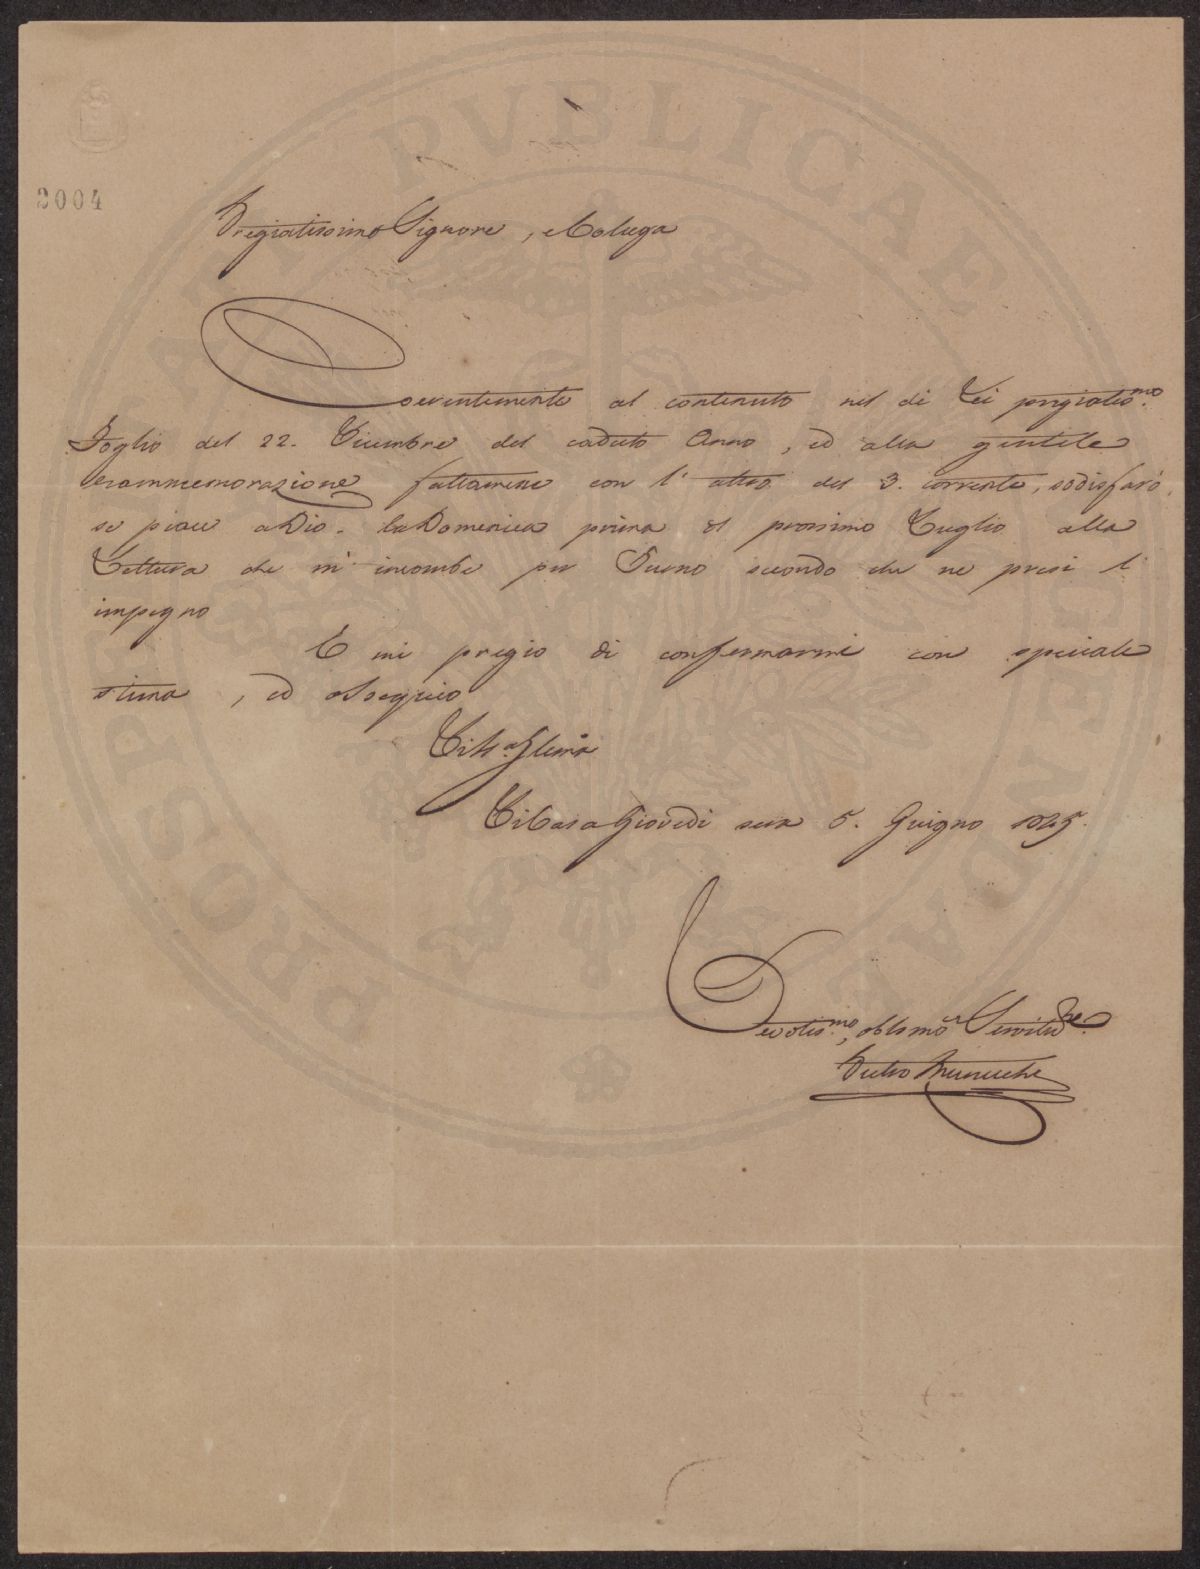 2004
Pregiatissimo Signore, e Collega
Coerentemente al contenuto nel di Lei pregiatis.mo
Foglio del 22. Dicembre del caduto Anno, ed alla gentile
rammemorazione fattamene con l'altro del 3. corrente, sodisfarò,
se piace a Dio, la Domenica prima del prossimo Luglio alla
Lettura che m'incombe per Turno secondo che ne presi l'
impegno
E mi pregio di confermarmi con speciale
stima, ed ossequio
Di Casa Giovedì sera 5. Giugno 1845.
Devotis.mo, obbmo Servitore
Pietro
PROSPERITATI PVBLICAE AVGENDAE